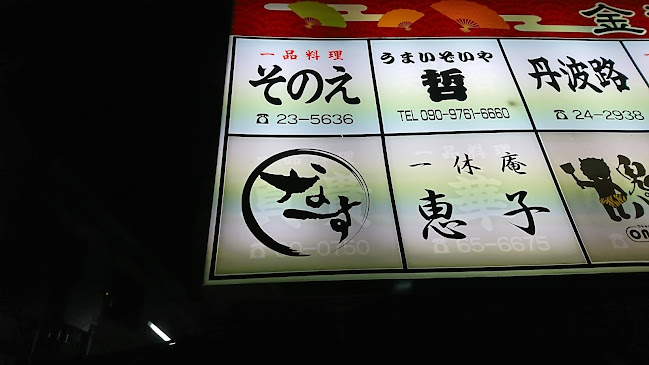 金
一品料理
そのえ
☎ 23-5636
うまいぞいや
哲
TEL 090-9761-6660
丹波路
☎ 24-2938
なすび
一休庵
恵子
☎ 65-6675
鬼